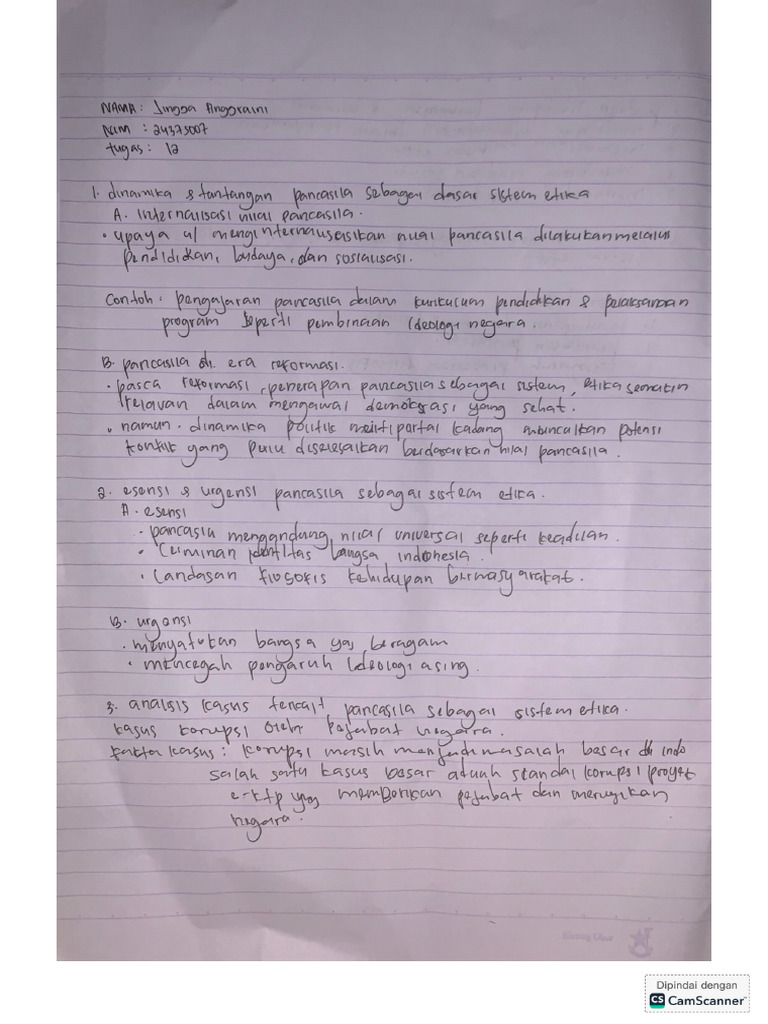 NAMA : Jingga Anggraini
NIM : 24375007
tugas : 12
1. dinamika & tantangan pancasila sebagai dasar sistem etika
A. Internalisasi nilai pancasila.
• upaya u/ menginternalisasikan nilai pancasila dilakukan melalui
pendidikan, budaya, dan sosialisasi.
Contoh : pengajaran pancasila dalam kurikulum pendidikan & pelaksanaan
program seperti pembinaan Ideologi negara.
B. pancasila di era reformasi.
• pasca reformasi, penerapan pancasila sebagai sistem, etika semakin
relavan dalam mengawal demokrasi yang sehat.
• namun. dinamika politik multipartai kadang munculkan potensi
konflik yang perlu diselesaikan berdasarkan nilai pancasila.
2. esensi & urgensi pancasila sebagai sistem etika.
A. esensi
• pancasila mengandung nilai universal seperti keadilan.
• Cerminan identitas bangsa indonesia.
• Landasan filosofis kehidupan bermasyarakat.
B. urgensi
• menyatukan bangsa yg beragam
• mencegah pengaruh Ideologi asing.
3. analisis kasus terkait pancasila sebagai sistem etika.
kasus korupsi oleh Pejabat negara.
fakta kasus : korupsi masih menjadi masalah besar di indo
salah satu kasus besar adalah standal korupsi proyek
e-ktp yg pejabat dan merugikan
negara.
Dipindai dengan
CS CamScanner